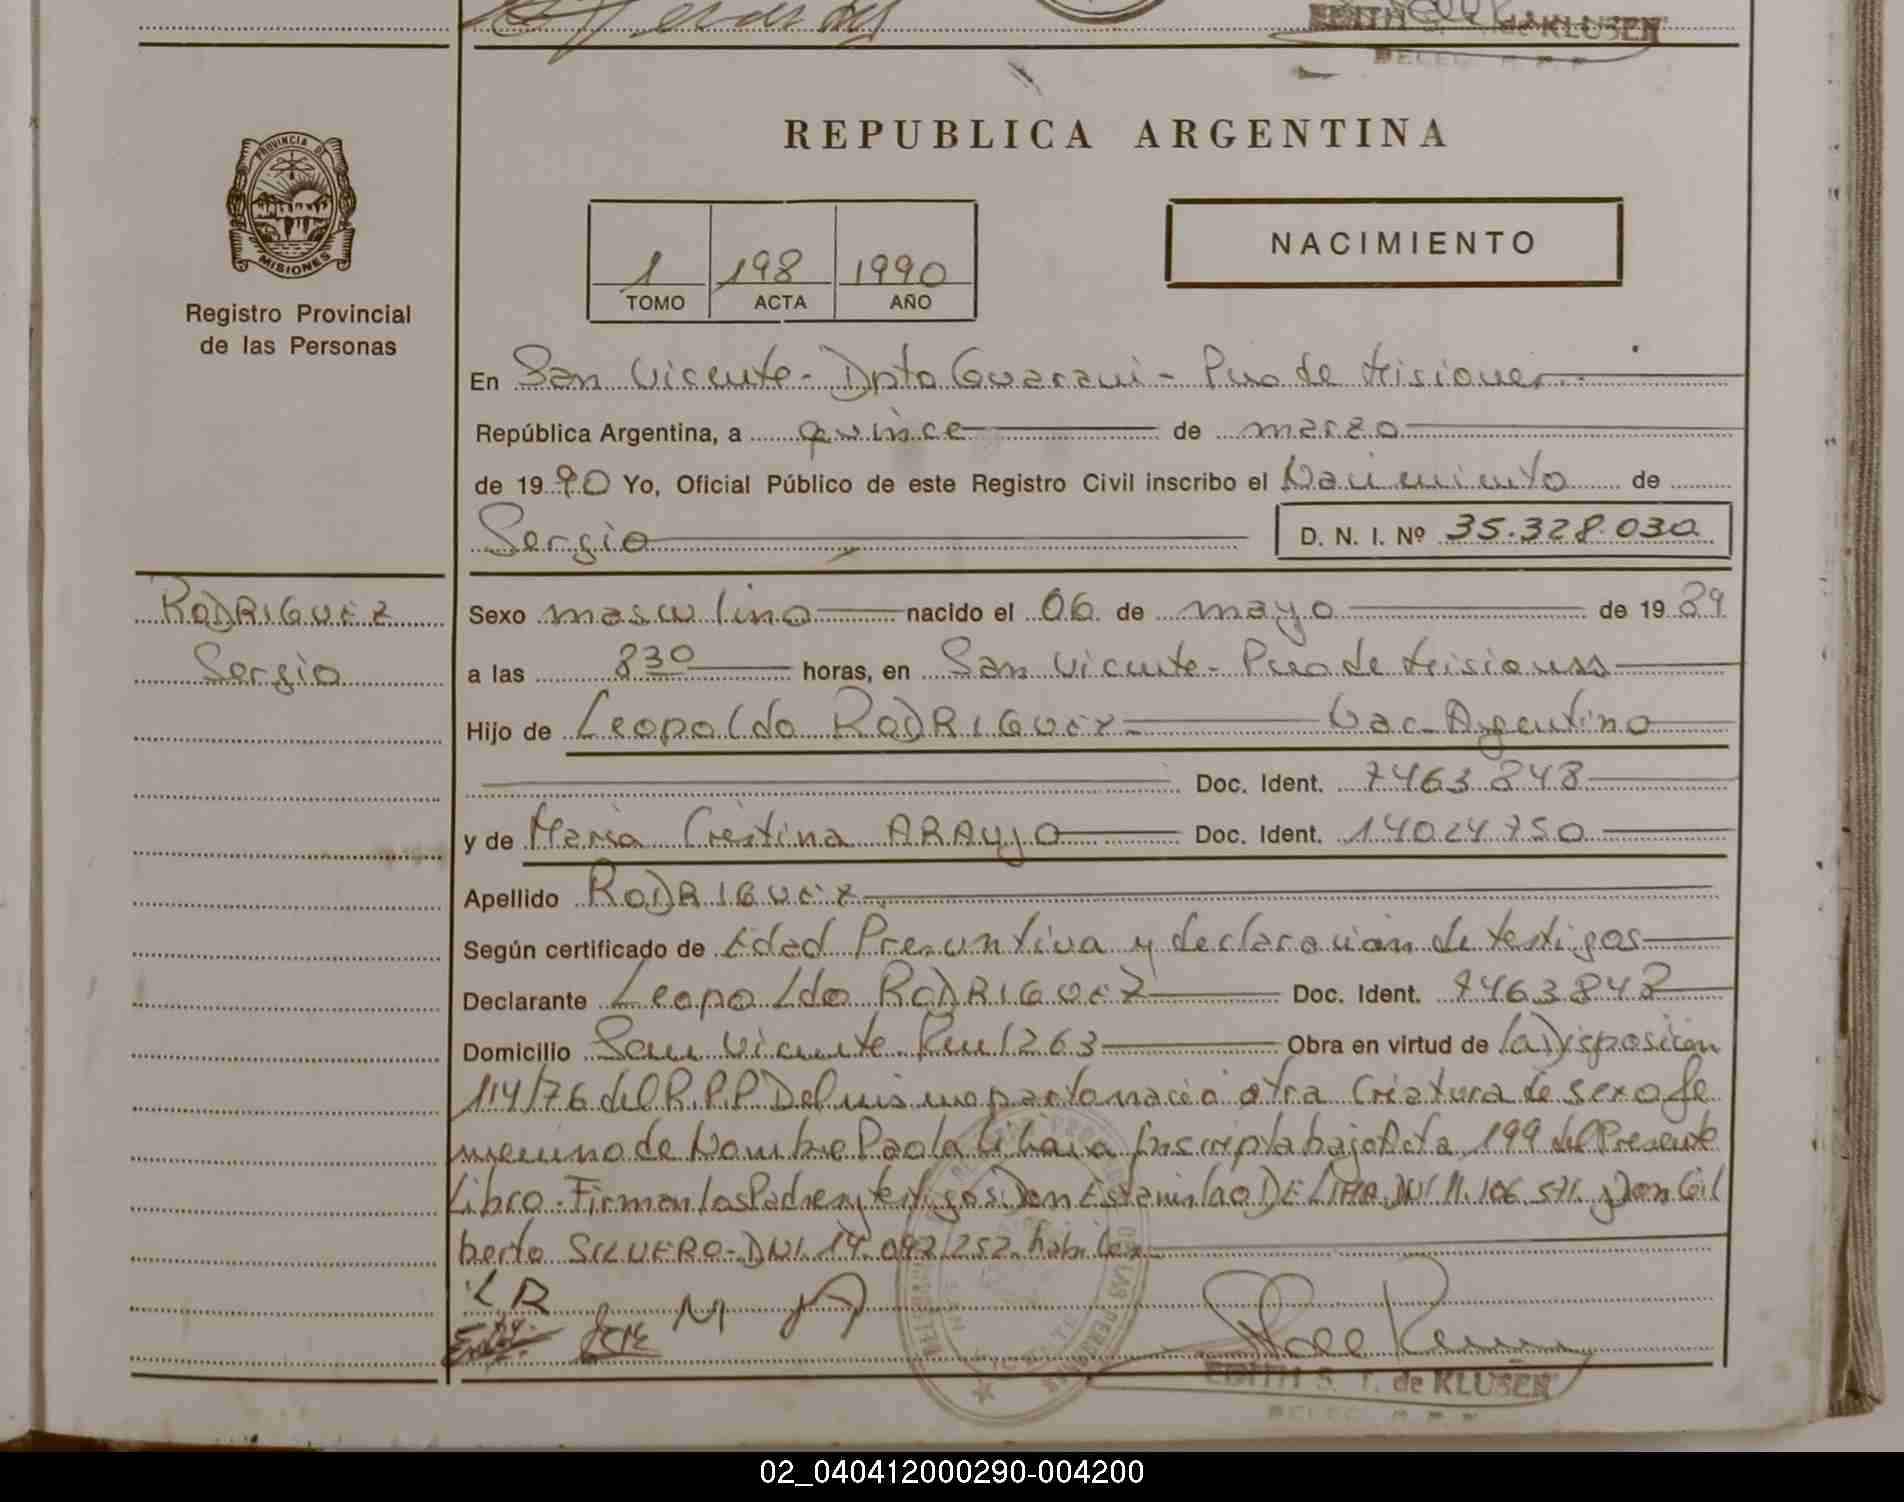 EDITH S. T. de KLUSEN
REPUBLICA ARGENTINA
PROVINCIA DE
MISIONES
Registro Provincial
de las Personas
1 198 1990
TOMO ACTA AÑO
NACIMIENTO
En San Vicente - Dpto Guarani - Pcia de Misiones
República Argentina, a quince de marzo
de 1990 Yo, Oficial Público de este Registro Civil inscribo el Nacimiento de
Sergio D. N. I. Nº 35.328.030
RODRIGUEZ
Sergio
Sexo masculino nacido el 06 de mayo de 1989
a las 830 horas, en San Vicente - Pcia de Misiones
Hijo de Leopoldo RODRIGUEZ - Nac- Argentino
Doc. Ident. 7463848
y de Maria Cristina ARAUJO Doc. Ident. 14024750
Apellido RODRIGUEZ
Según certificado de Edad Presuntiva y declaracion de testigos
Declarante Leopoldo RODRIGUEZ Doc. Ident. 7463848
Domicilio San Vicente Km 1263 Obra en virtud de la Disposicion
114/76 del R.P.P. Del mismo parto nacio otra Criatura de sexo fe
menino de Nombre Paola Inscripta bajo Acta 199 del Presente
Libro. Firman los Padres y testigos: Don Estanislao DE LIMA DNI 11.106.571 y Don Gil
berto SILVERO - DNI 14.092.252 habiles
L R M A
EDITH S. T. de KLUSEN
DELEG. R. P. P.
02_040412000290-004200